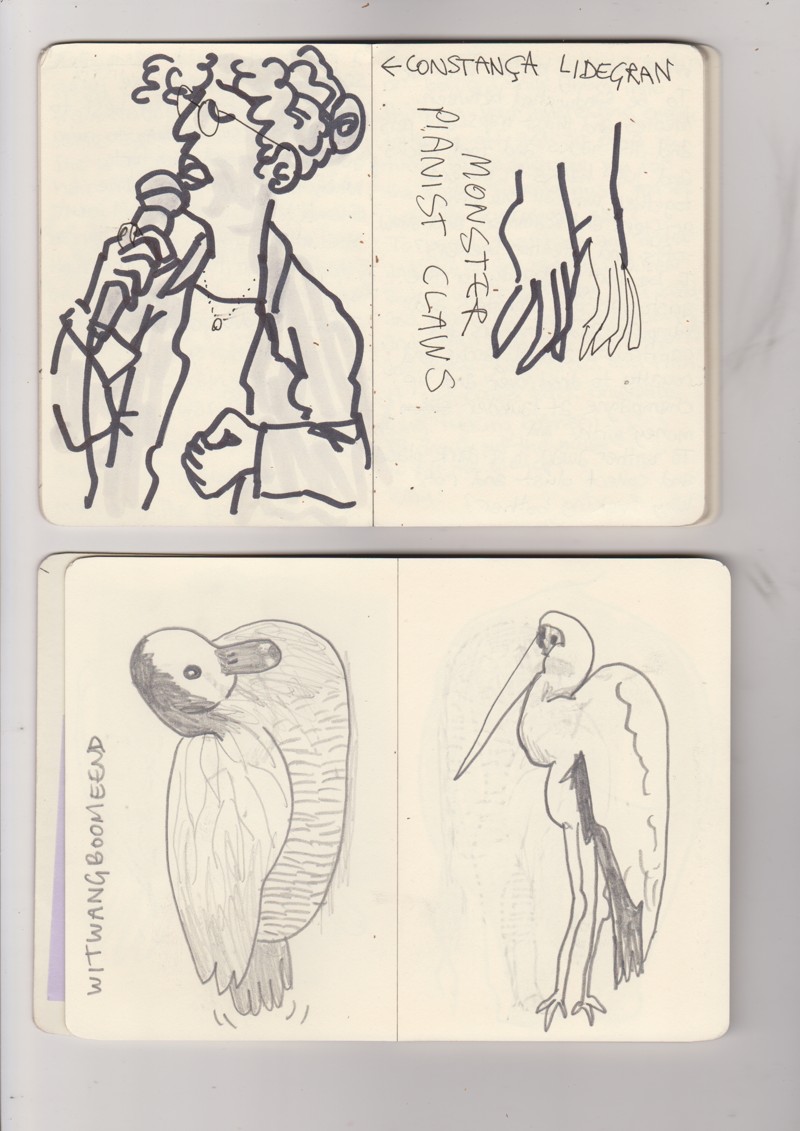 ←CONSTANÇA LIDEGRAN
MONSTER
PIANIST CLAWS
WITWANGBOOMEEND